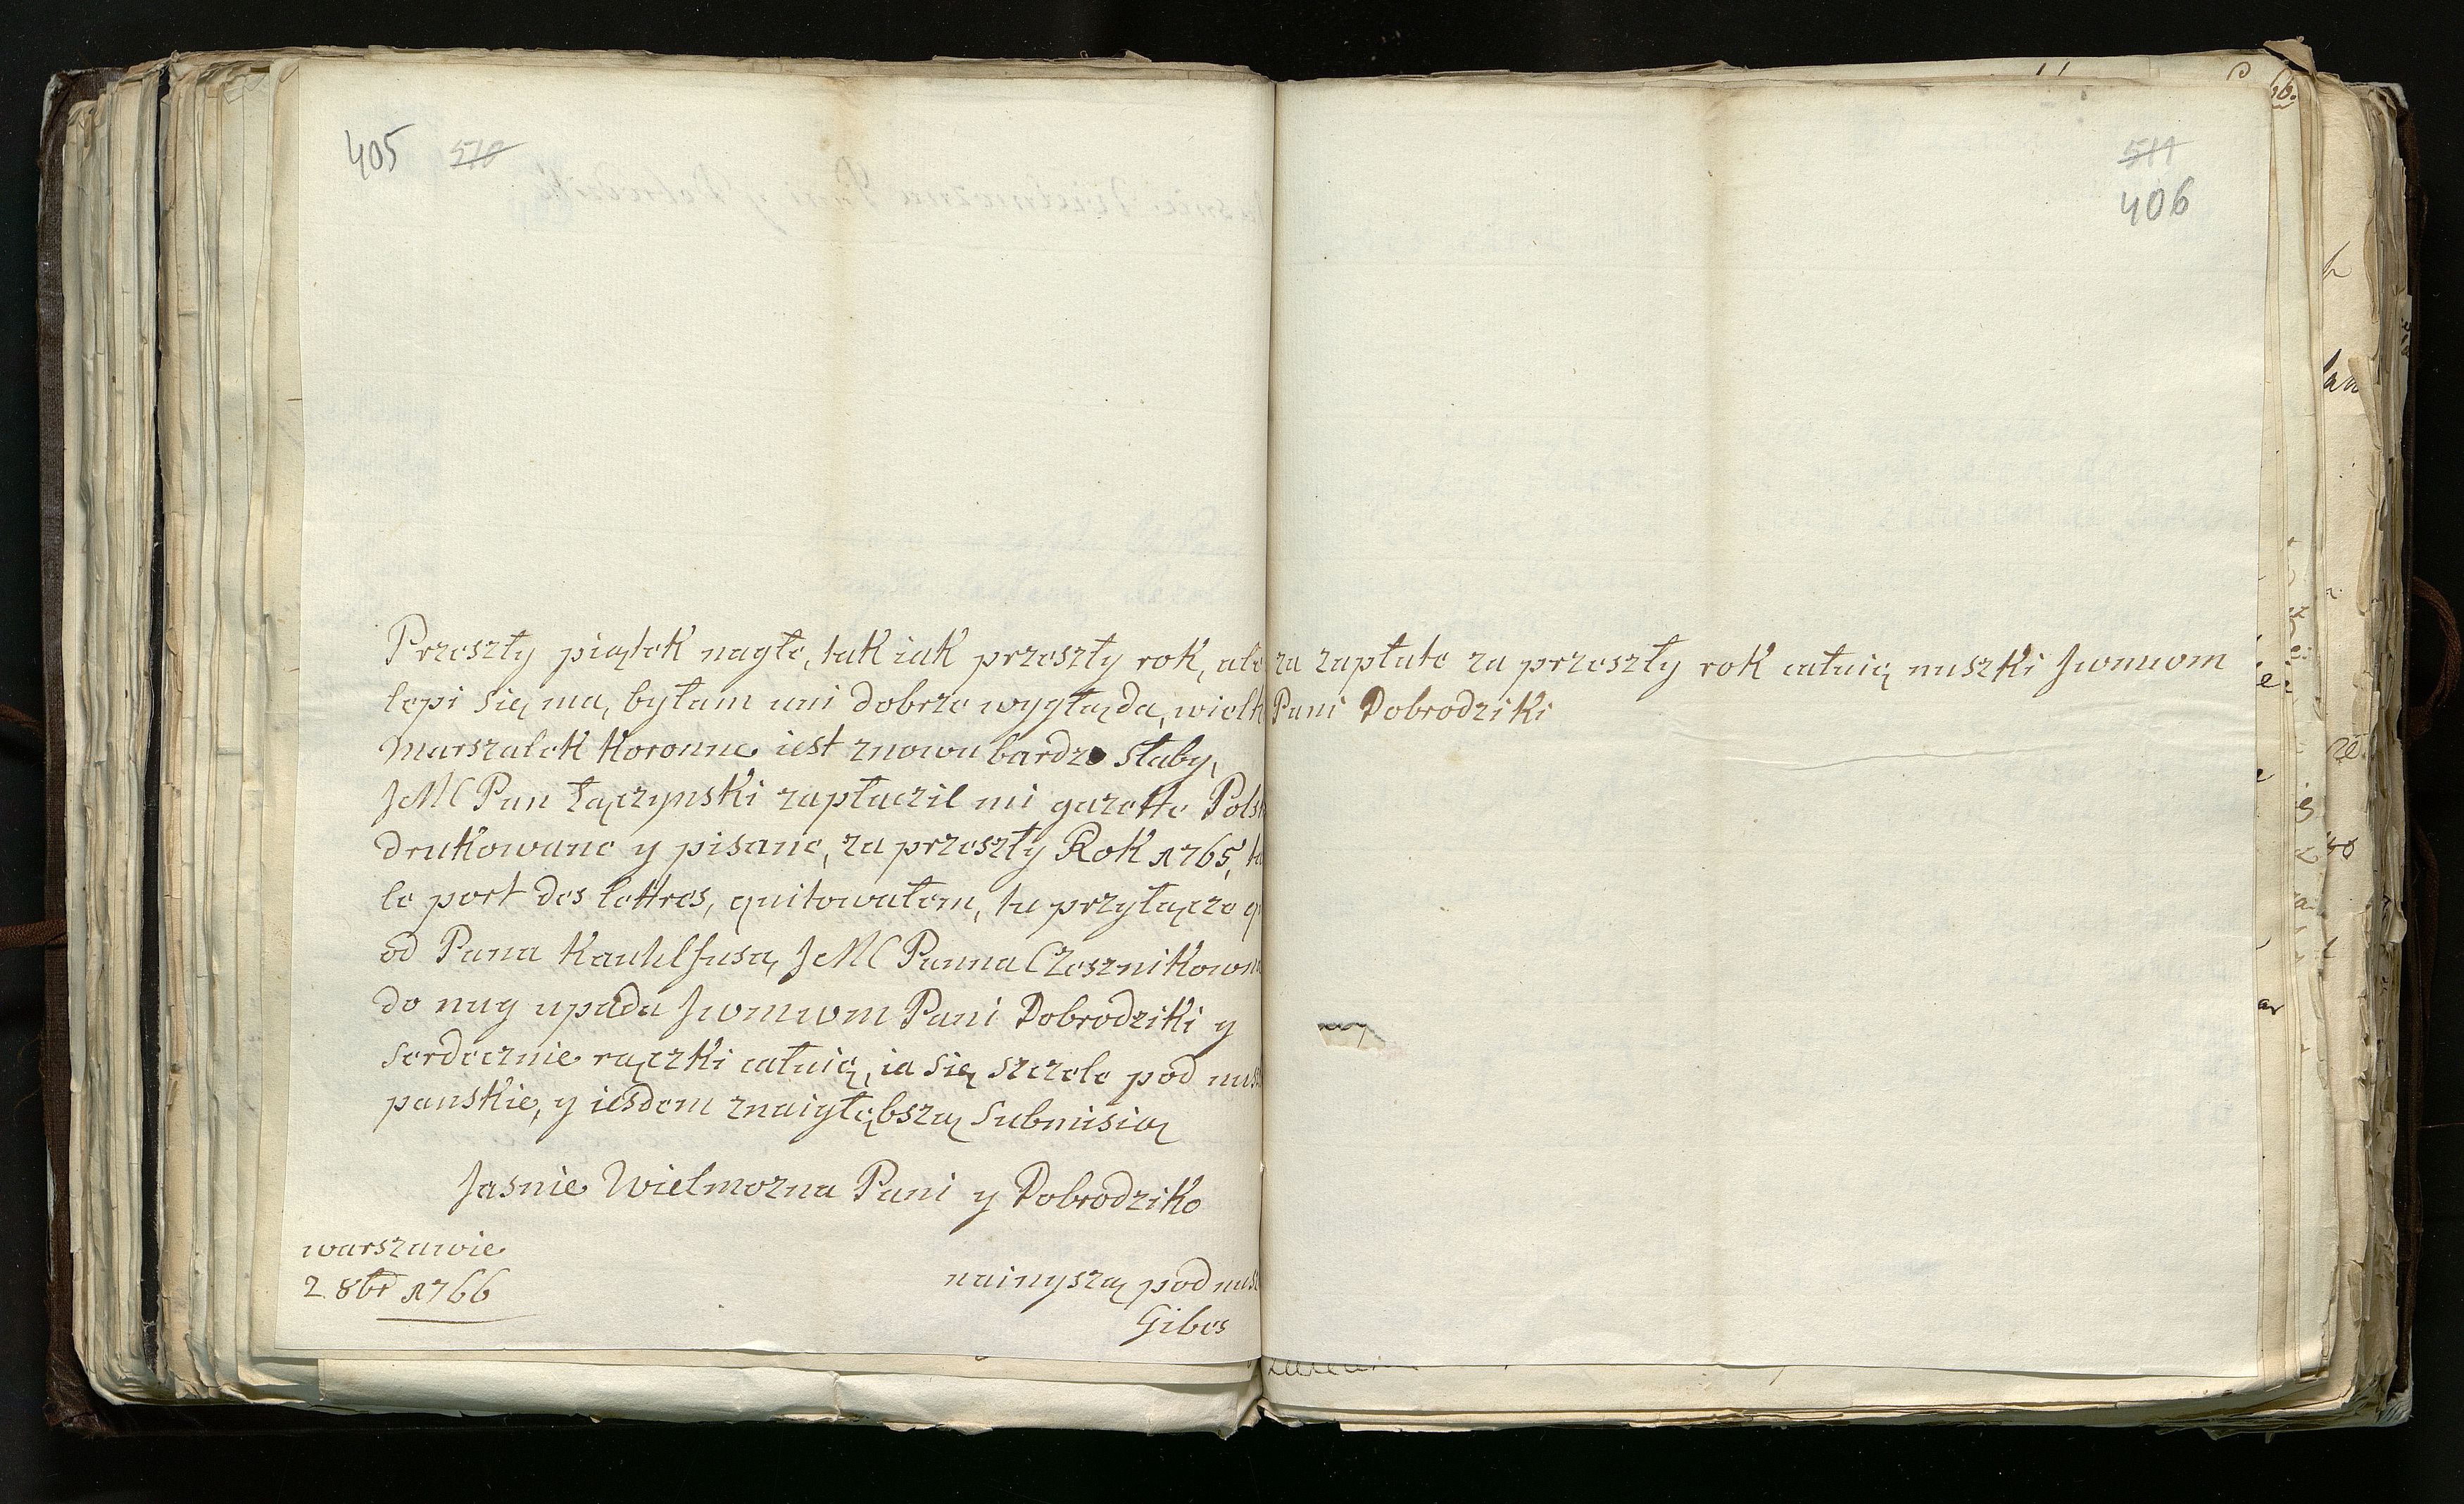 405 510
Przeszły piątek nagłe, tak iak przeszły rok, ale
lepi się ma, byłam uni dobrze wygłąda, wielk
Marszalek Koronne iest znowu bardzo słaby,
JMC Pan Łączynski zapłaczil mi gazette Pols
drukowane y pisane, za przeszły Rok 1765, ta
le port des lettres, quitowałem, tu przyłącze q
od Pana Kauhlfusa, JMC Panna Czesznikowna
do nug upada Jwmwm Pani Dobrodziki y
serdecznie rączki całuię, ia się szczele pod nus
panskie, y iesdem znaigłębszą submisią
Jasnie Wielmozna Pani y Dobrodziko
warszawie
2 8br 1766
nainyszą pod nus
Gibes
511
406
za zapłate za przeszły rok całuię nuszki Jwmwm
Pani Dobrodziki